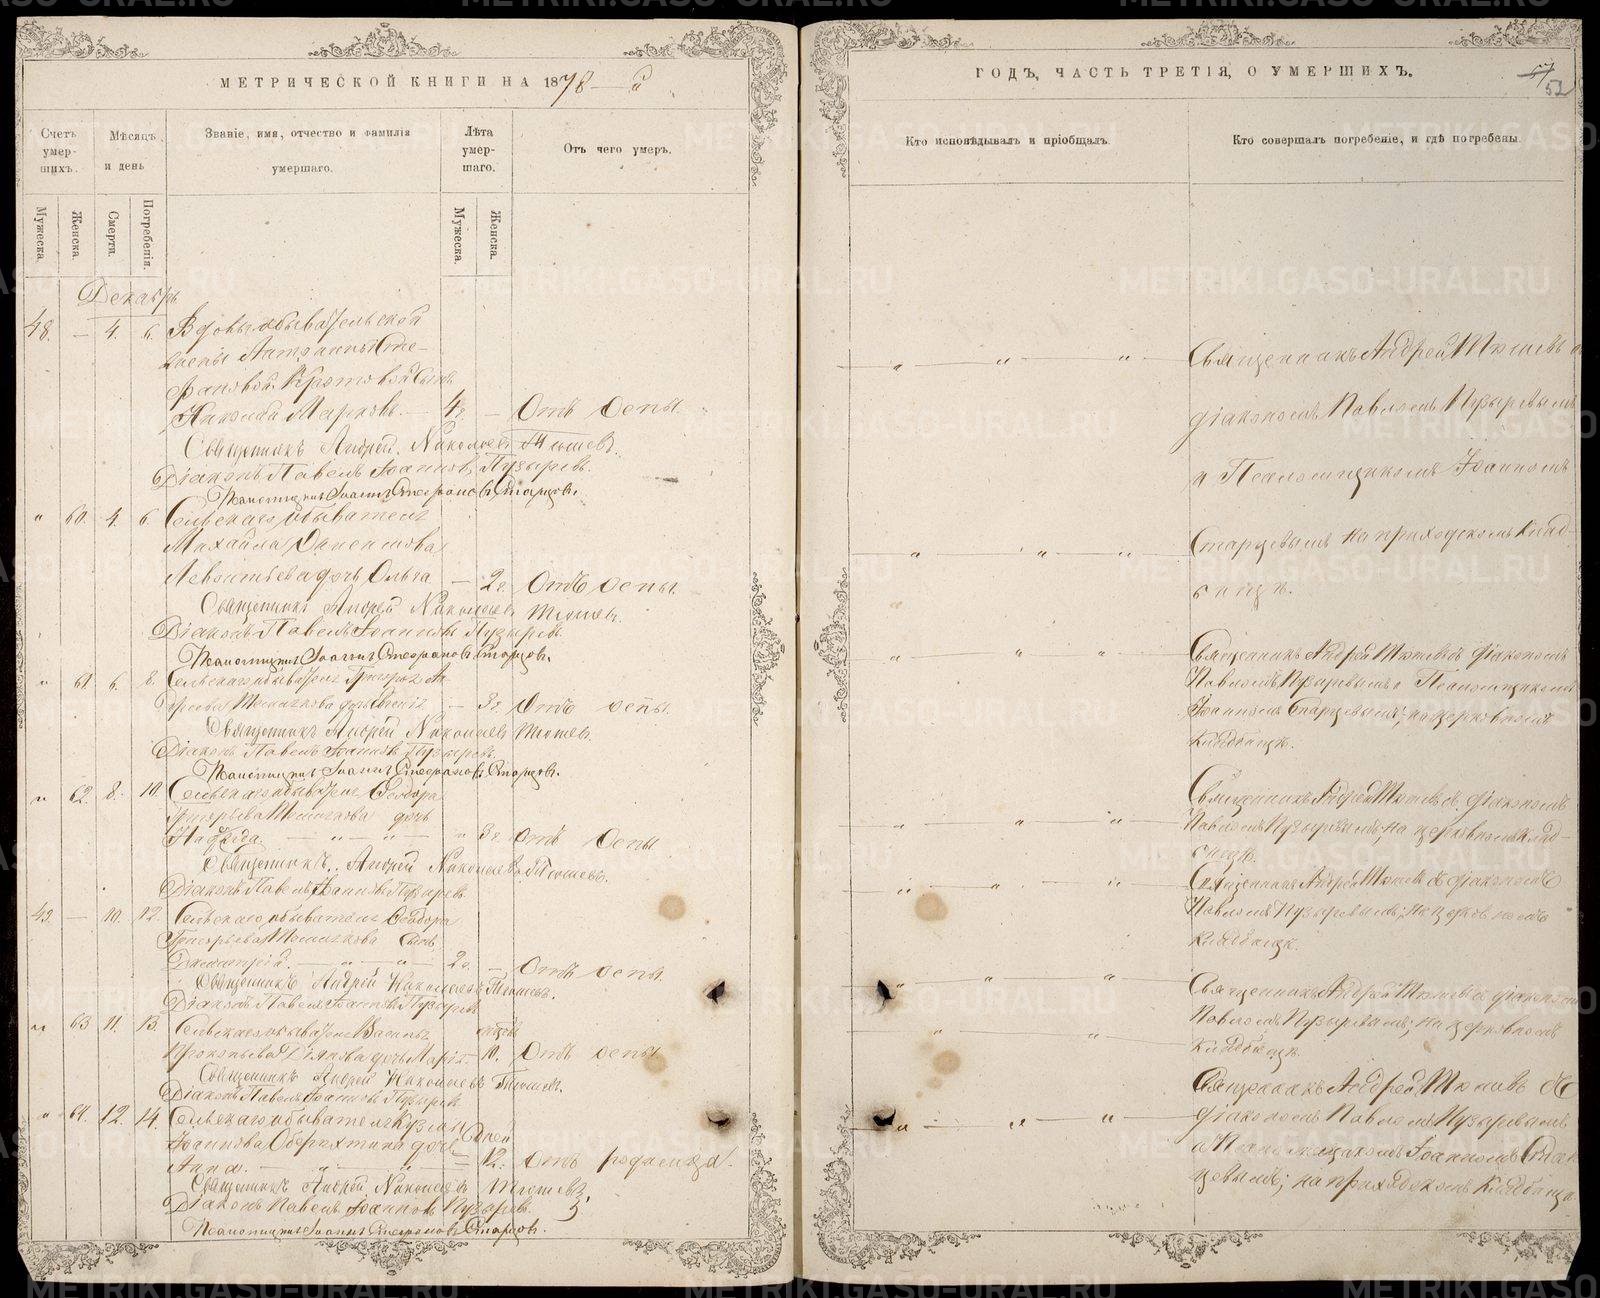 МЕТРИЧЕСКОЙ КНИГИ НА 1878 й
Счетъ умер-шихъ.
Мѣсяцъ и день
Званіе, имя, отчество и фамилія умершаго.
Лѣта умер-шаго.
Отъ чего умеръ.
Мужеска.
Женска.
Смерти.
Погребенія.
Мужеска.
Женска.
Декабрь
48. — 4. 6. Вдовы обывательской
Антонины Сте-
фановой Кротовой сынъ
Николай Марковъ. — 4 г. — Отъ оспы.
Священникъ Андрей Николаевъ Тюшевъ.
Діаконъ Павелъ Іоанновъ Пузыревъ.
Псаломщикъ Іоаннъ Стефановъ Старцовъ.
" 60. 4. 6. Сельскаго обывателя
Михайла
Леонтьева дочь Ольга — 2 г. Отъ оспы.
Священникъ Андрей Николаевъ Тюшевъ.
Діаконъ Павелъ Іоанновъ Пузыревъ.
Псаломщикъ Іоаннъ Стефановъ Старцовъ.
" 61 6. 8. Сельскаго обывателя Григорья
дочь — 3 г. Отъ оспы.
Священникъ Андрей Николаевъ Тюшевъ.
Діаконъ Павелъ Іоанновъ Пузыревъ.
Псаломщикъ Іоаннъ Стефановъ Старцовъ.
" 62. 8. 10. Сельскаго обывателя Ѳеодора
Григорьева дочь
— " — " — " 3 г. Отъ оспы
Священникъ Андрей Николаевъ Тюшевъ.
Діаконъ Павелъ Іоанновъ Пузыревъ.
49. — 10. 12. Сельскаго обывателя Ѳеодора
Григорьева сынъ
Димитрій. — " — " — 2 г. — Отъ оспы.
Священникъ Андрей Николаевъ Тюшевъ.
Діаконъ Павелъ Іоанновъ Пузыревъ.
" 63 11. 13. Сельскаго обывателя Василья
Прокопьева дочь Марія — 10. Отъ оспы
Священникъ Андрей Николаевъ Тюшевъ.
Діаконъ Павелъ Іоанновъ Пузыревъ
" 64. 12. 14. Сельскаго обывателя Кузмы
Іоаннова Оберюхтина дочь дней
Анна. — " — " — 12. отъ родимца.
Священникъ Андрей Николаевъ Тюшевъ,
Діаконъ Павелъ Іоанновъ Пузыревъ.
Псаломщикъ Іоаннъ Стефановъ Старцовъ.
ГОДЪ, ЧАСТЬ ТРЕТІЯ, О УМЕРШИХЪ.
57
52
Кто исповѣдывалъ и пріобщалъ.
Кто совершалъ погребеніе, и гдѣ погребены.
Священникъ Андрей Тюшевъ съ
діакономъ Павломъ Пузыревымъ
и Псаломщикомъ Іоанномъ
Старцевымъ на приходскомъ клад-
бищѣ.
Священникъ Андрей Тюшевъ діакономъ
Павломъ Пузыревымъ и Псаломщикомъ
Іоанномъ Старцевымъ; на церковномъ
кладбищѣ.
Священникъ Андрей Тюшевъ съ діакономъ
Павломъ Пузыревымъ; на церковномъ клад-
бищѣ.
Священникъ Андрей Тюшевъ съ діакономъ
Павломъ Пузыревымъ; на церковномъ
кладбищѣ.
Священникъ Андрей Тюшевъ съ діакономъ
Павломъ Пузыревымъ; на церковномъ
кладбищѣ.
Священникъ Андрей Тюшевъ съ
діакономъ Павломъ Пузыревымъ
и Псаломщикомъ Іоанномъ Стар-
цевымъ; на приходскомъ кладбищѣ
METRIKI.GASO-URAL.RU